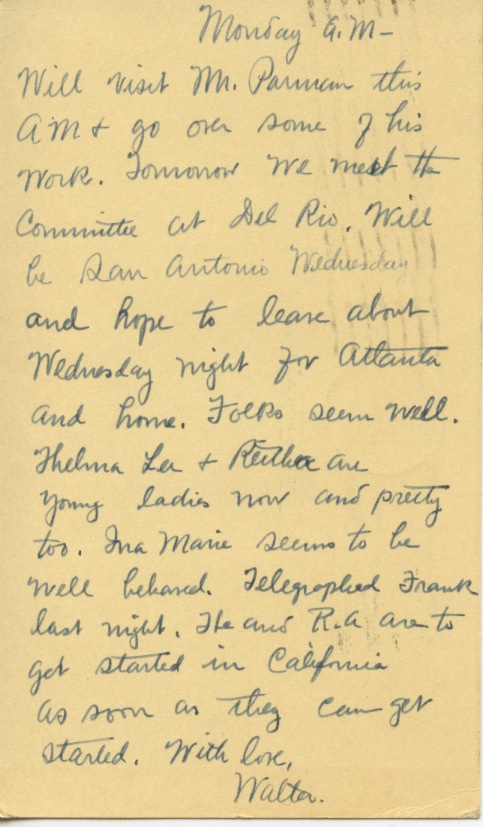 Monday A.M-
Will visit Mr. Parman this
AM & go over some of his
work. Tomorrow we meet the
Committee at Del Rio. Will
be San Antonio Wednesday
and hope to leave about
Wednesday night for Atlanta
and home. Folks seem well.
Thelma Lea & Reitha are
young ladies now and pretty
too. Ina Marie seems to be
well behaved. Telegraphed Frank
last night. He and R.A are to
get started in California
as soon as they can get
started. With love,
Walter.